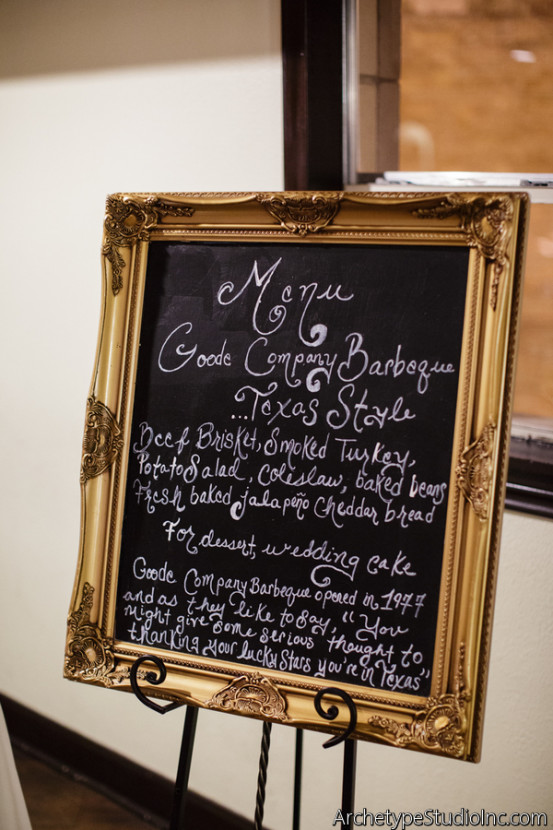 Menu
Goode Company Barbeque
...Texas Style
Beef Brisket, Smoked Turkey,
Potato Salad, coleslaw, baked beans
Fresh baked jalapeño cheddar bread
For dessert, wedding cake
Goode Company Barbeque opened in 1977
and as they like to say, "You
might give some serious thought to
thanking your lucky stars you're in Texas"
ArchetypeStudioInc.com